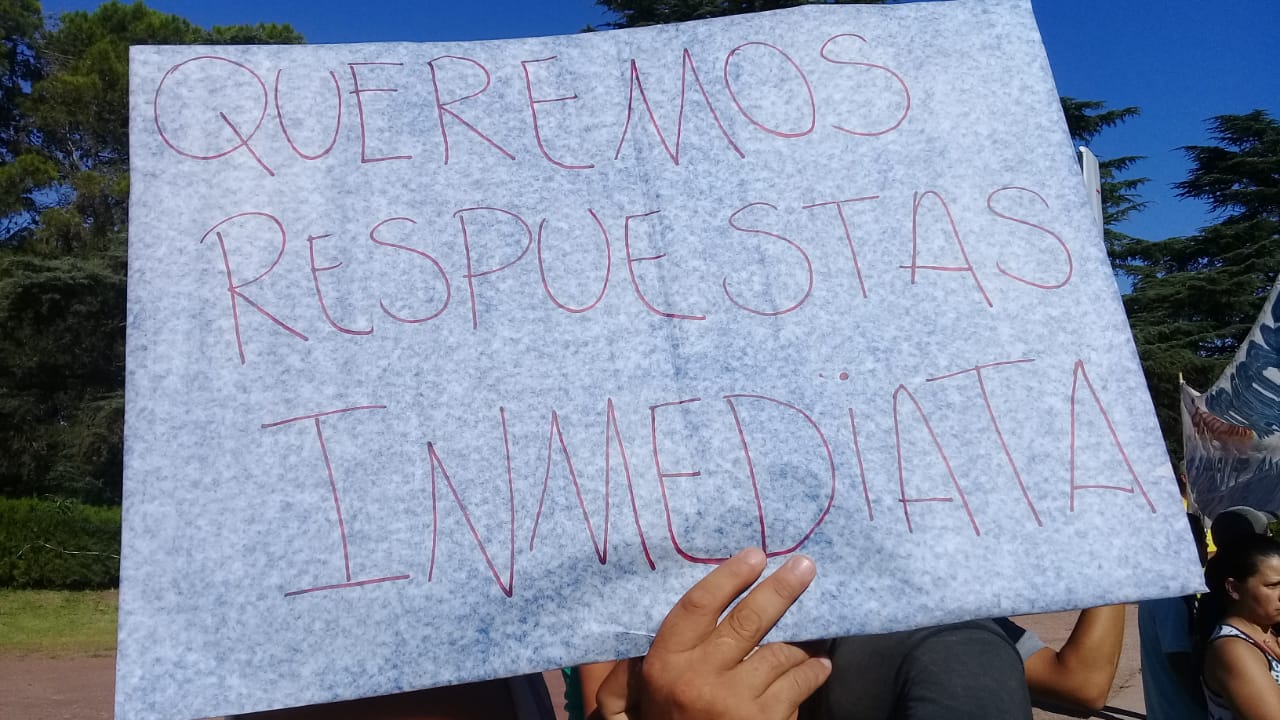 QUEREMOS
RESPUESTAS
INMEDiATA